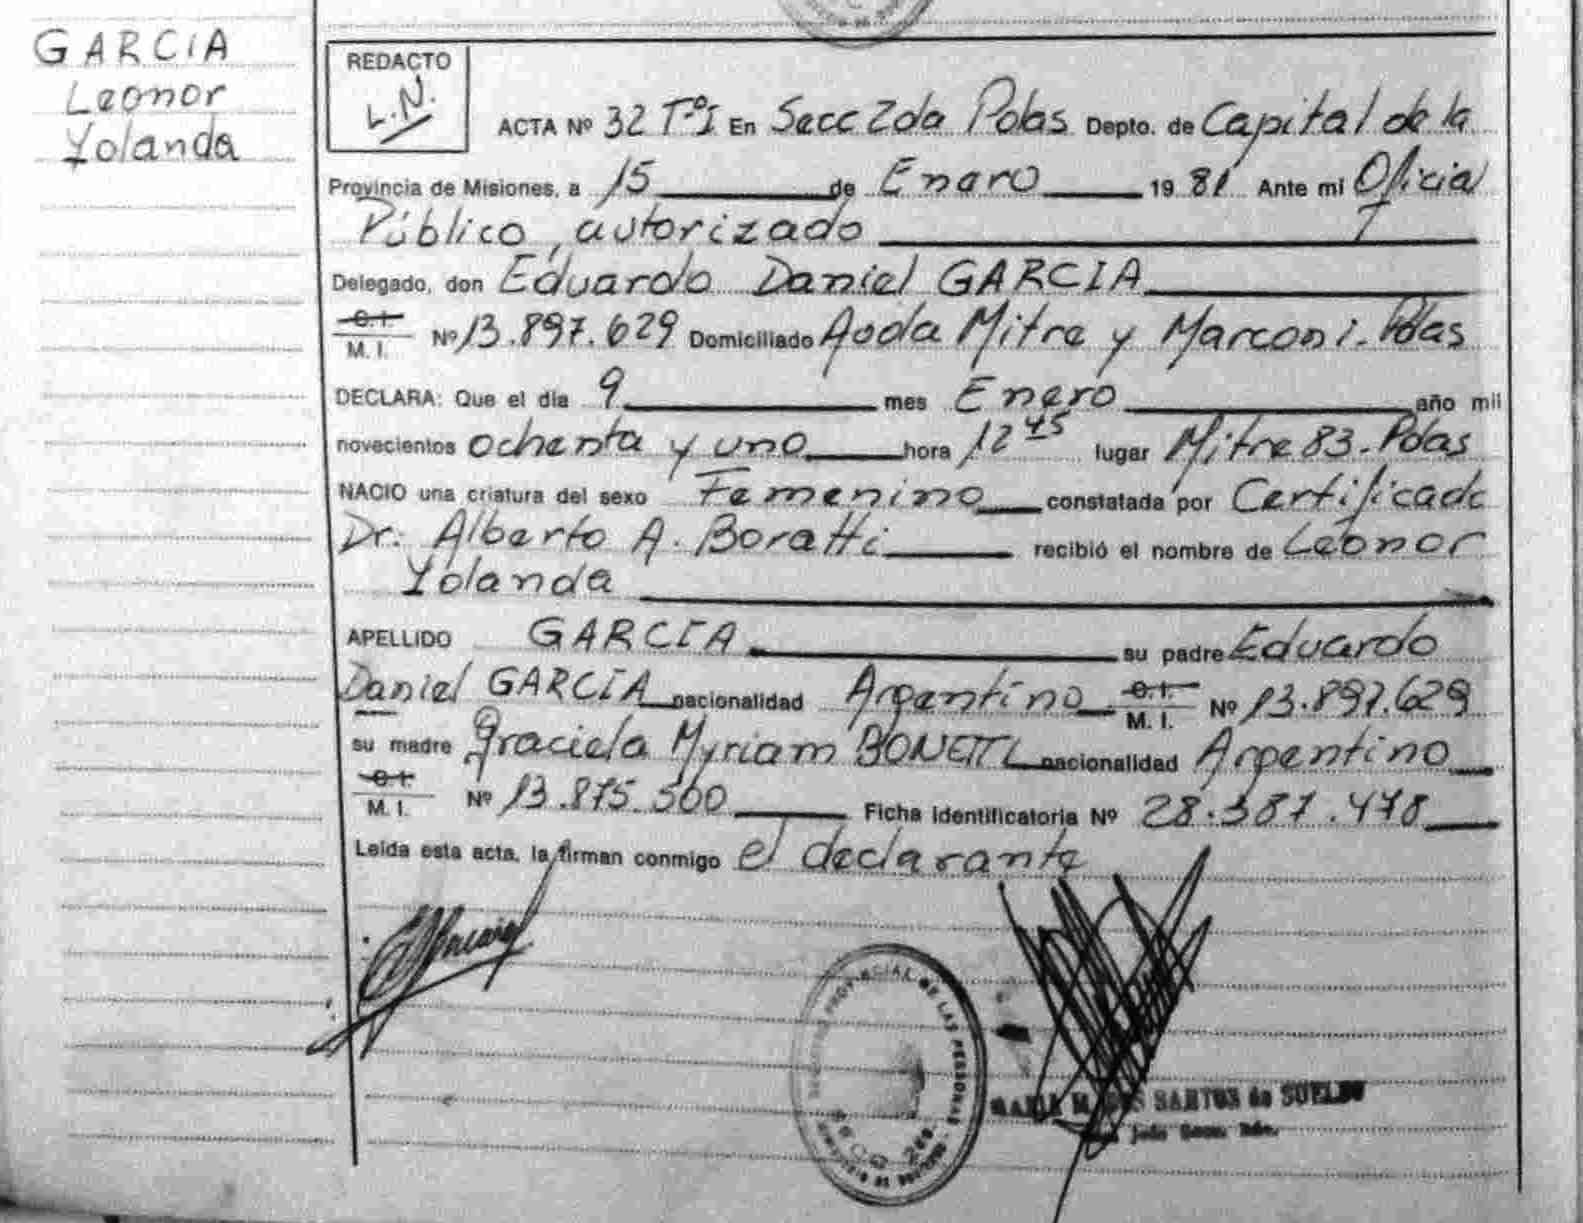 GARCIA
Leonor
Yolanda
REDACTO
L.N.
ACTA Nº 32 TºI En Secc 2da Pdas Depto. de Capital de la
Provincia de Misiones, a 15 de Enero 1981 Ante mi Oficial
Público, autorizado
Delegado, don Eduardo Daniel GARCIA
C.I.
M. I. Nº 13.897.629 Domiciliado Avda Mitre y Marconi. Pdas
DECLARA: Que el día 9 mes Enero año mil
novecientos ochenta y uno hora 12 45 lugar Mitre 83. Pdas
NACIO una criatura del sexo Femenino constatada por Certificado
Dr. Alberto A. Boratti recibió el nombre de Leonor
Yolanda
APELLIDO GARCIA su padre Eduardo
Daniel GARCIA nacionalidad Argentino C.I. M. I. Nº 13.897.629
su madre Graciela Myriam BONETTI nacionalidad Argentino
C.I.
M. I. Nº 13.875.500 Ficha Identificatoria Nº 28.387.478
Leída esta acta, la firman conmigo el declarante
PROVINCIAL DE LAS PERSONAS
SANTOS de SUELDO